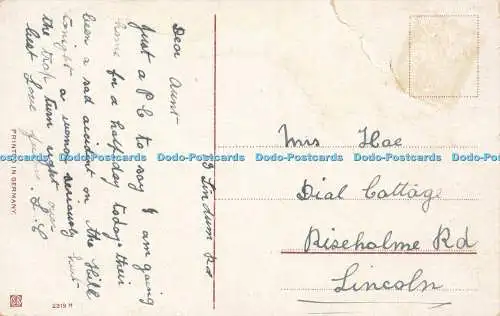 3 Lindum Rd
Dear Aunt
Just a P C to say I am going
home for a halfday today their
been a sad accident on the Hill
tonight a woman seriously hurt
the trap turn right over
best Love from L. C
Mrs Hoe
Dial Cottage
Riseholme Rd
Lincoln
PRINTED IN GERMANY.
2319 H
Dodo-Postcards Dodo-Postcards Dodo-Postcards Dodo-Postcards Dodo-Postcards Dodo-Postcards